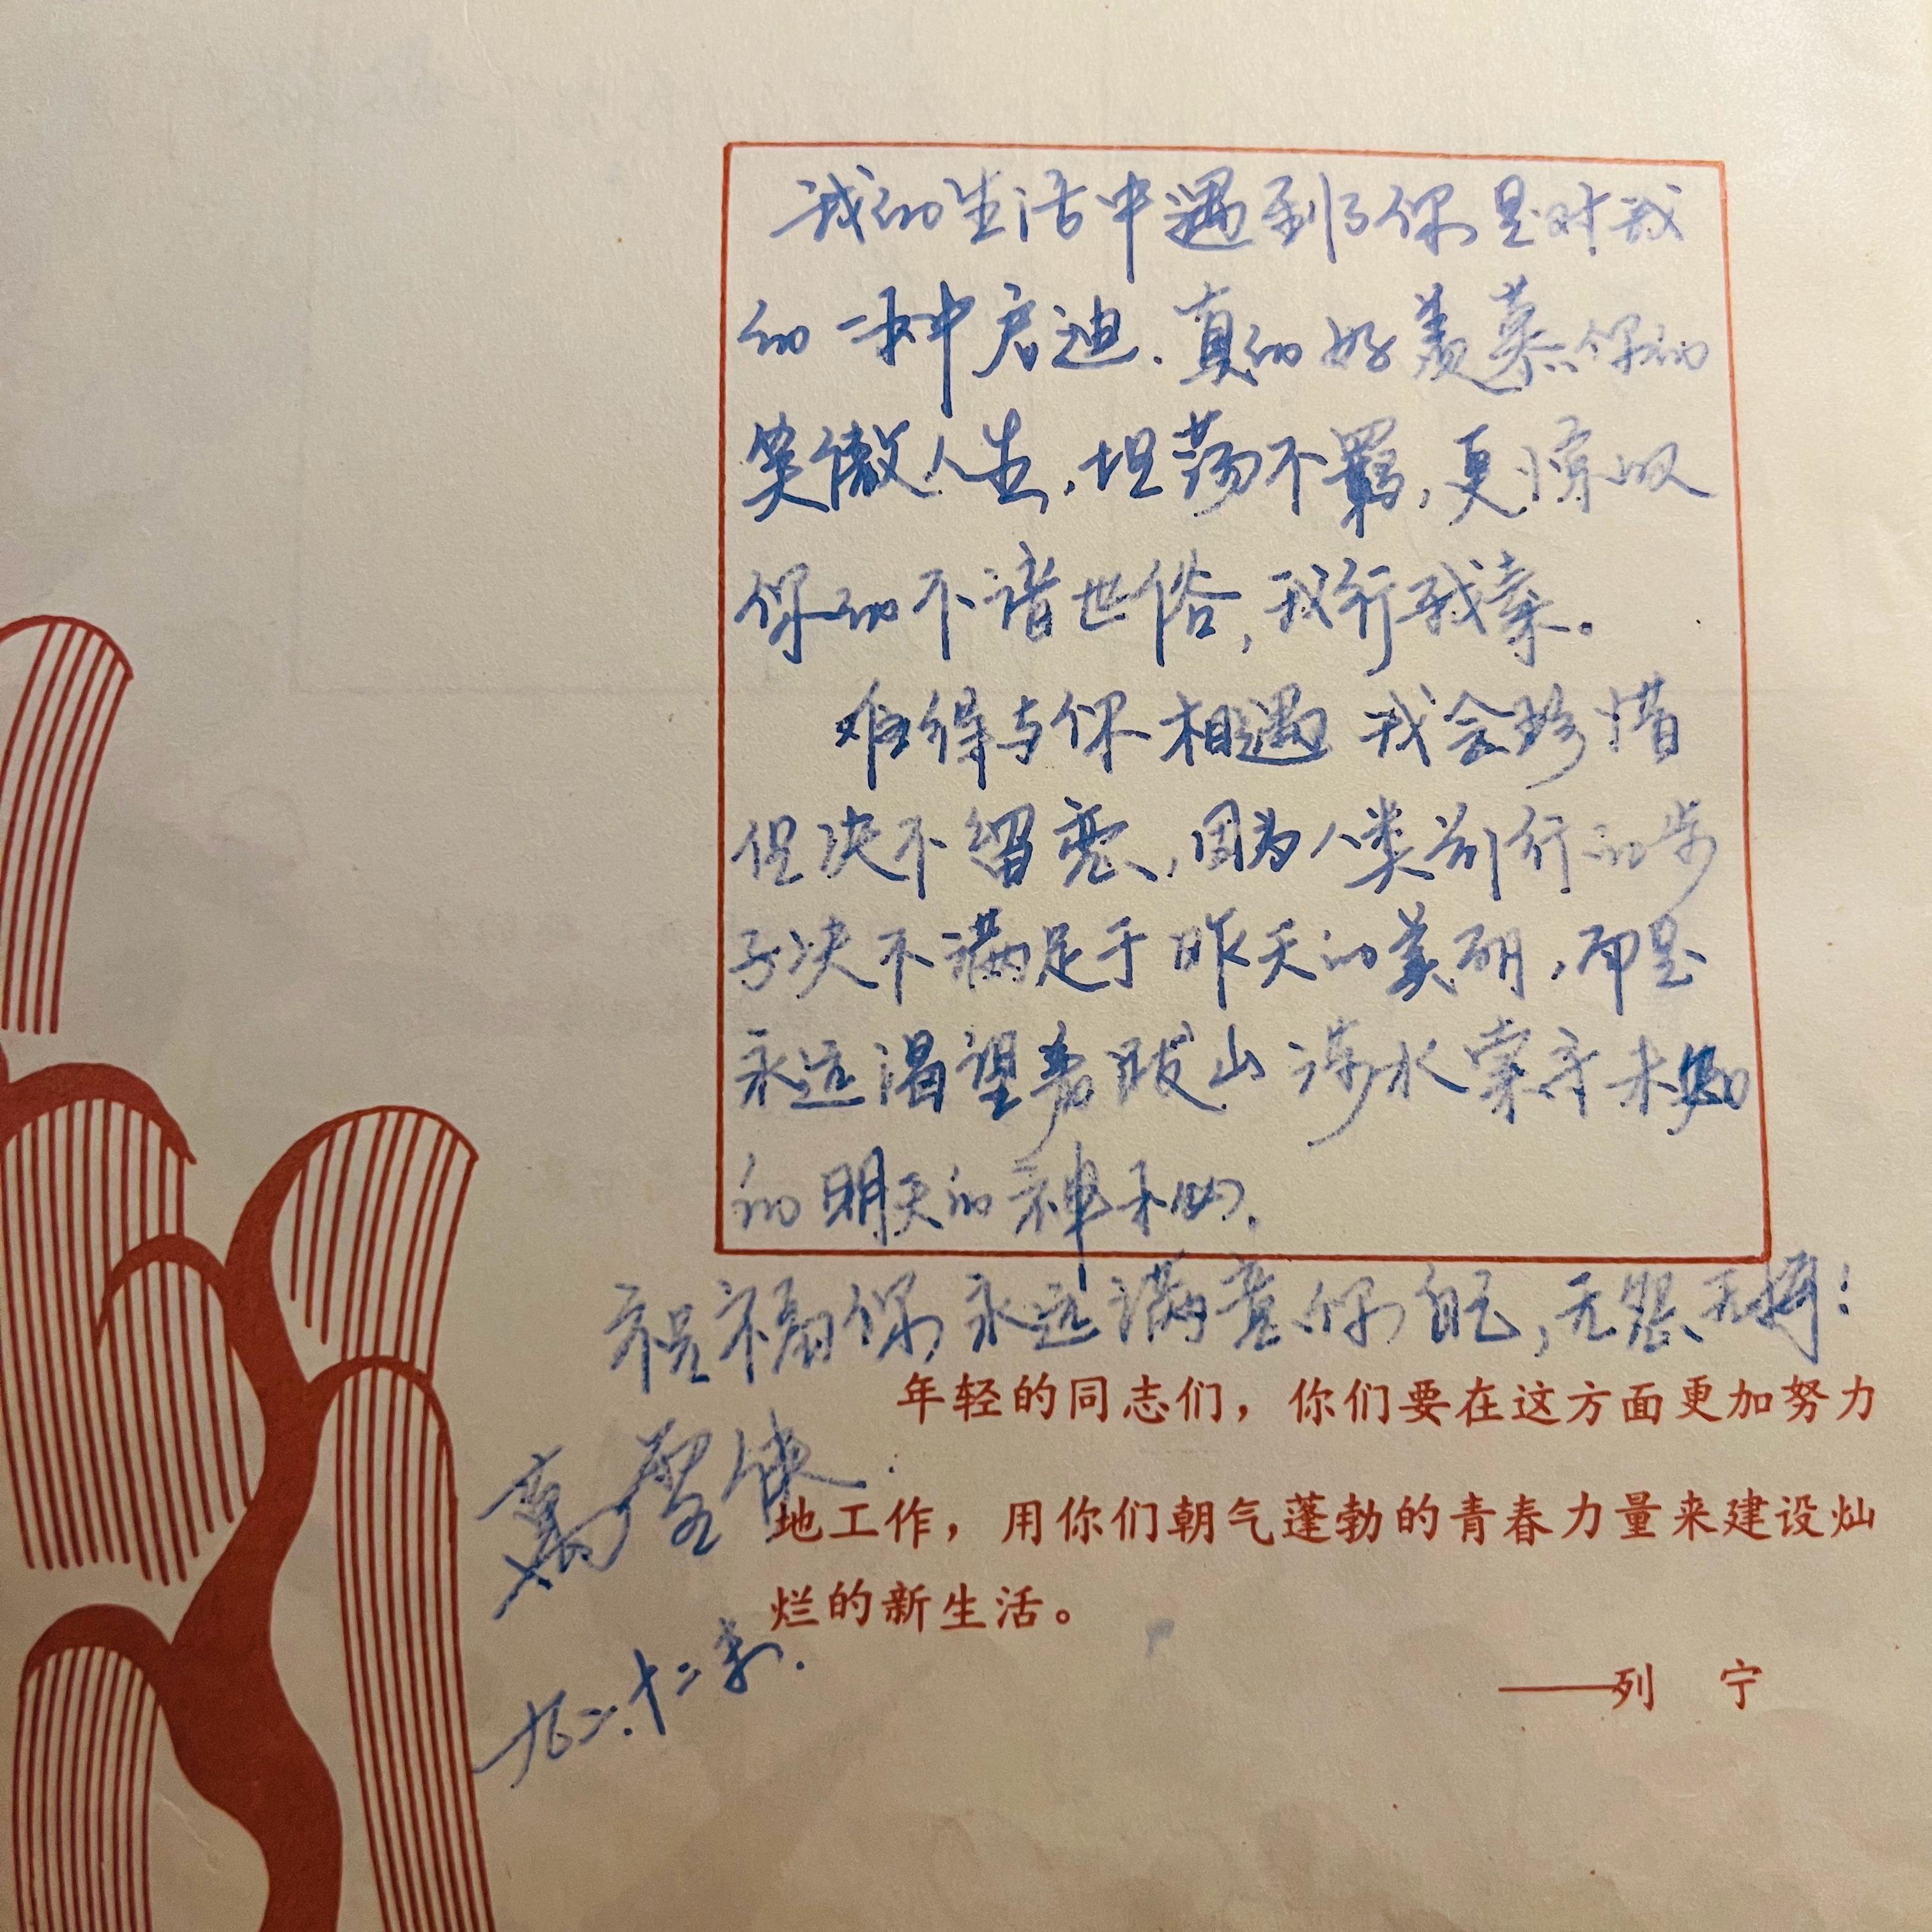 我的生活中遇到了你是对我
的一种启迪.真的好羡慕你的
笑傲人生,坦荡不羁,更惊叹
你的不谙世俗,我行我素。
难得与你相遇 我会珍惜
但决不留恋,因为人类前行的步
子决不满足于昨天的美丽,而是
永远渴望着跋山涉水 未知
的明天的神秘.
祝福你永远满意你自己,无怨无悔!
年轻的同志们，你们要在这方面更加努力
地工作，用你们朝气蓬勃的青春力量来建设灿
烂的新生活。
——列 宁
九二.十二